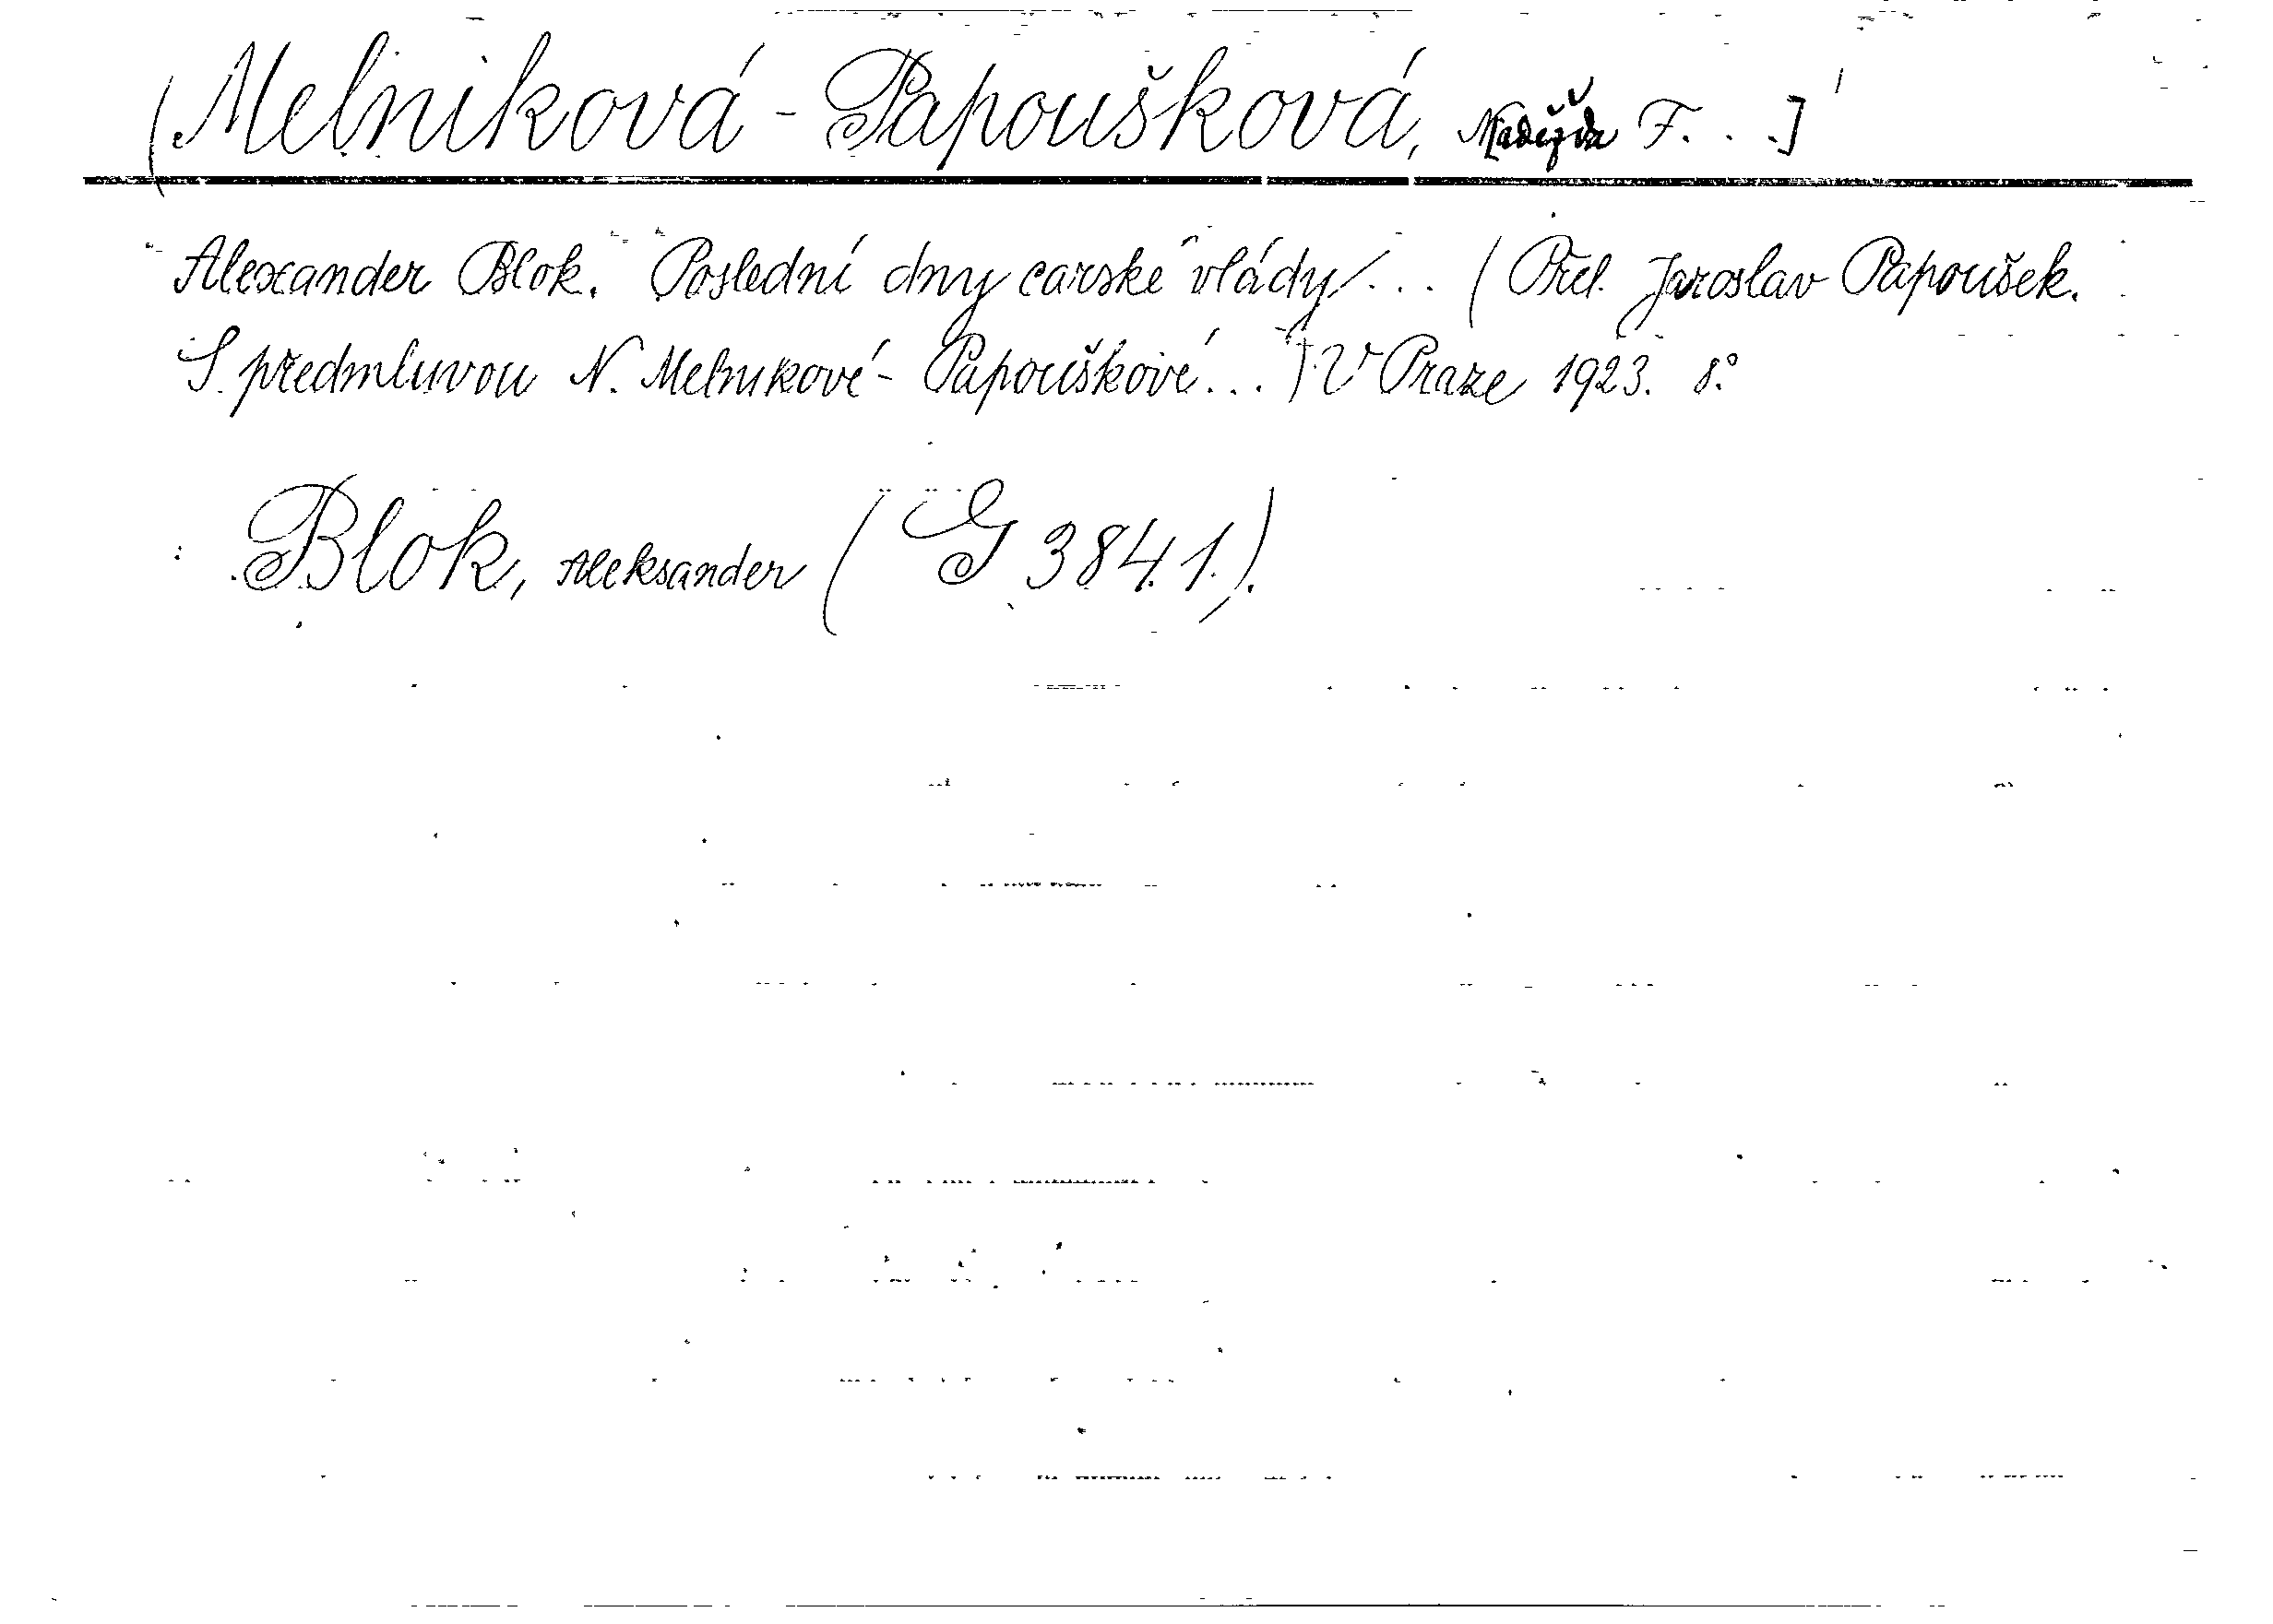 (Melniková-Papoušková, Naděžda F. . .]
Alexander Blok. Poslední dny carské vlády... (Přel. Jaroslav Papoušek.
S předmluvou N. Melnikové-Papouškové...) V Praze 1923. 8.°
Blok, Aleksander (G 384.1.).